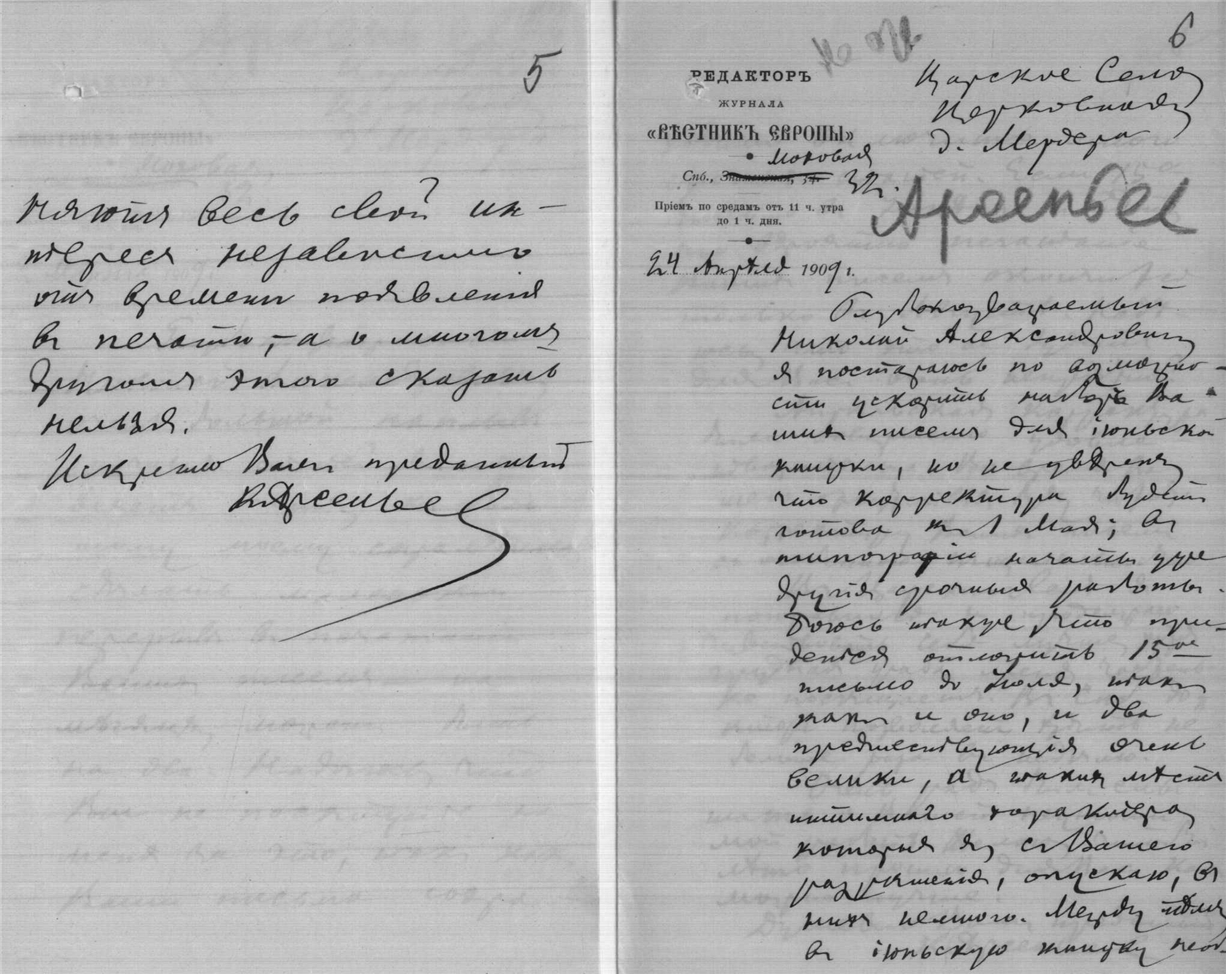 5
няютъ весь свой ин-
тересъ независимо
отъ времени появленія
въ печати, – а о многомъ
другомъ этого сказать
нельзя.
Искренно Вамъ преданный
К. Арсеньев
6
РЕДАКТОРЪ
ЖУРНАЛА
«ВѢСТНИКЪ ЕВРОПЫ»
Моховая
Спб., Знаменская, 34. 32.
Пріемъ по средамъ отъ 11 ч. утра
до 1 ч. дня.
Царское Село
Церковная
д. Мердера
Арсеньев
24 Апрѣля 1909 г.
Глубокоуважаемый
Николай Александровичъ
я постараюсь по возможно-
сти ускорить наборъ Ва-
шихъ писемъ для іюньской
книжки, но не увѣренъ
что корректура будетъ
готова къ 1 Мая; въ
типографіи начаты уже
другія срочныя работы.
Боюсь также, что при-
дется отложить 15ое
письмо до Іюля, такъ
какъ и оно, и два
предшествующія очень
велики, а такихъ мѣстъ
интимнаго характера
которыя я, съ Вашего
разрѣшенія, опускаю, въ
нихъ немного. Между тѣмъ
въ іюньскую книжку необ-